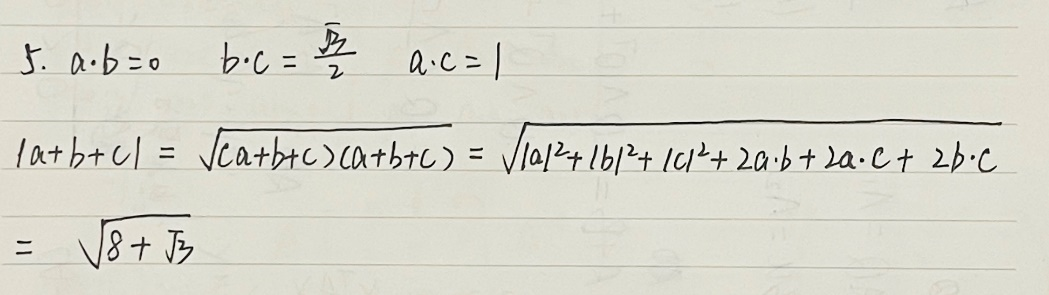 5. a·b=0 b·c = √3/2 a·c = 1
|a+b+c| = √(a+b+c)(a+b+c) = √|a|²+|b|²+|c|²+2a·b+2a·c+2b·c
= √8+√3